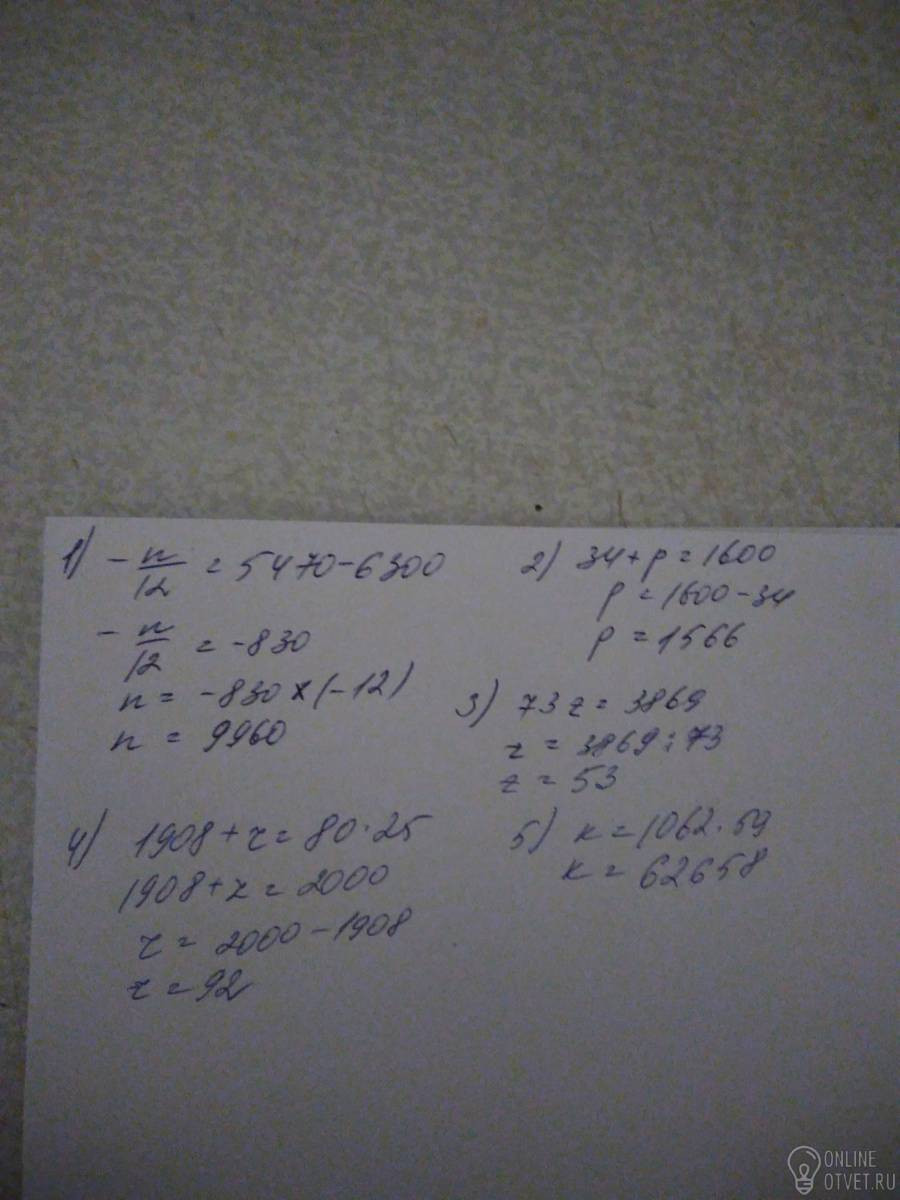 1) - n/12 = 5470-6300
- n/12 = -830
n = -830 x (-12)
n = 9960
2) 34+p=1600
p=1600-34
p=1566
3) 73z=3869
z=3869:73
z=53
4) 1908+z=80·25
1908+z=2000
z=2000-1908
z=92
5) k=1062·59
k=62658
ONLINE
OTVET.RU